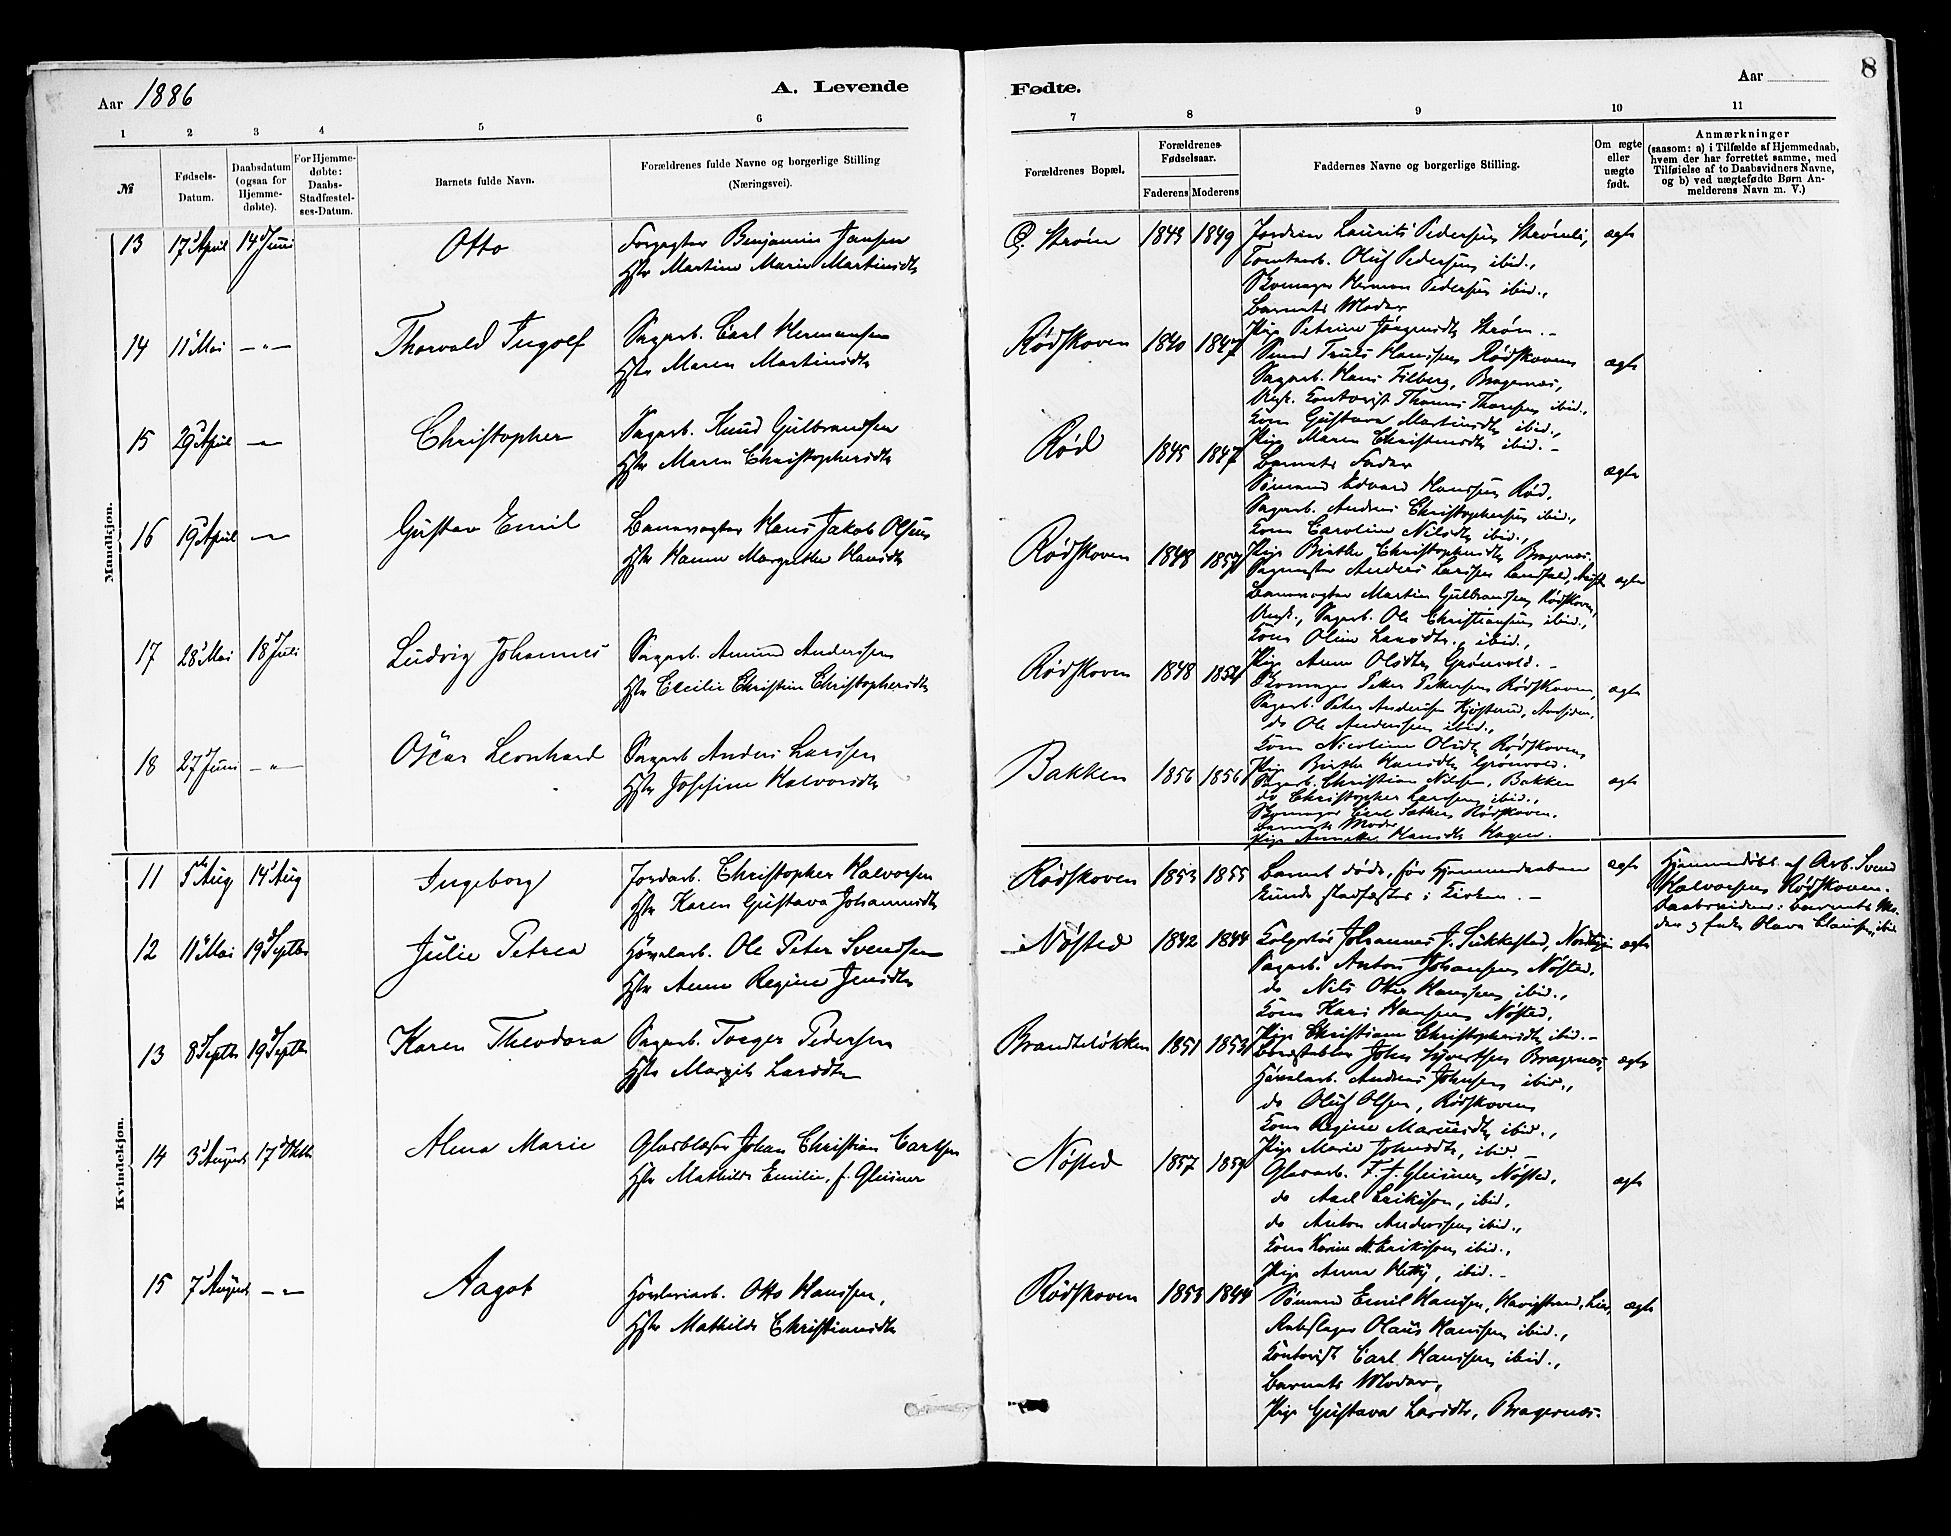 Aar 1886
A. Levende
Fødte.
Aar
8
1 2 3 4 5 6 7 8 9 10 11
№
Fødsels-
Datum.
Daabsdatum
(ogsaa for
Hjemme-
døbte).
For Hjemme-
døbte:
Daabs-
Stadfæstel-
ses-Datum.
Barnets fulde Navn.
Forældrenes fulde Navne og borgerlige Stilling
(Næringsvei).
Forældrenes Bopæl.
Forældrenes
Fødselsaar.
Faderens Moderens
Faddernes Navne og borgerlige Stilling.
Om ægte
eller
uægte
født.
Anmærkninger
(saasom: a) i Tilfælde af Hjemmedaab,
hvem der har forrettet samme, med
Tilføielse af to Daabsvidners Navne,
og b) ved uægtefødte Børn An-
melderens Navn m. V.)
Mandkjøn.
13 17 April 14 Juni Otto
Forpagter Benjamin Jansen
Hstr Martine Marie Martinsdtr
Strøm 1843 1849
Laurits Pedersen Strømli,
Oluf Pedersen ibid.,
Skomager Herman Pedersen ibid.,
Barnets Moder
Pige Petrine Jörgensdtr Strøm. –
ægte
14 11 Mai –"– Thorvald Ingolf
Sagarb. Carl Hermansen
Hstr Maren Martinsdtr
Rødskoven 1840 1847
Smed Truls Hanssen Rødskoven
Sagarb. Hans Filberg, Bragernæs,
Ungk. Kontorist Thomas Thoresen ibid.,
Kone Gustava Martinsdtr ibid.,
Pige Maren Christensdtr ibid. –
ægte
15 29 April –"– Christopher
Sagarb. Knud Gulbrandsen
Hstr Maren Christophersdtr
Rød 1845 1847
Barnets Fader
Sømand Edvard Hanssen Rød,
Sagarb. Anders Christophersen ibid.,
Kone Caroline Nilsdtr ibid.,
Pige Birthe Christophersdtr Bragernæs.
ægte
16 19 April –"– Gustav Emil
Banevogter Hans Jakob Olsen
Hstr Hanne Margrethe Hansdtr
Rødskoven 1848 1857
Sagmester Anders Larssen Landfald,
Banevogter Martin Gulbrandsen Rødskoven,
Ungk., Sagarb. Ole Christiansen ibid.,
Kone Oline Larsdtr., ibid.,
Pige Anne Olsdtr Grönvold. –
ægte
17 28 Mai 18 Juli Ludvig Johannes
Sagarb. Amund Anderssen
Hstr Cecilie Christine Christophersdtr
Rødskoven 1848 1852
Skomager Petter Pettersen Rødskoven,
Sagarb. Peter Anderssen Kjøsterud, Aassiden,
do Ole Anderssen ibid.,
Kone Nicoline Olsdtr Rødskoven
Pige Birthe Hansdtr Grönvold.
ægte
18 27 Juni –"– Oscar Leonhard
Sagarb Anders Larssen
Hstr Josefine Halvorsdtr
Bakken 1856 1856
Sagarb. Christian Nilssen, Bakken
do Christopher Larssen ibid.,
Skomager Carl Sæther, Rødskoven.
Barnets Moder
Pige Annette Hansdtr Hagen.
ægte
Kvindekjøn.
11 5te Aug 14 Aug Ingeborg
Jordarb. Christopher Halvorsen
Hstr Karen Gustava Johannesdtr
Rødskoven 1853 1855
Barnet døde, før Hjemmedaaben
kunde stadfæstes i Kirken. –
ægte
Hjemmedøbt af Arb. Svend
Halvorsen Rødskoven.
Daabsvidner: Barnets Mo-
der og Olava Clausen, ibid
12 11 Mai 19 Septbr Julie Petrea
Høvelarb. Ole Peter Svendsen
Hstr Anne Regine Jensdtr
Nøsted 1842 1844
Johannes J. Sukkestad,
Sagarb. Anton Johansen Nøsted,
do Nils Otter Hanssen ibid.,
Kone Kari Hanssen Nøsted,
Pige Christiane Christophersdtr ibid. –
ægte
13 8 Septbr 19 Septbr Karen Theodora
Sagarb. Torger Pedersen
Hstr Margit Larsdtr
Brandteløkken 1851 1853
Bordstabler John Syvertsen Bragernæs,
Høvelarb. Andreas Johnsen ibid.,
do Oluf Olsen, Rødskoven
Kone Regine Mariusdtr ibid.,
Pige Marie Johnsdtr, ibid –
ægte
14 3 August 17 Oktbr Alma Marie
Glasblæser Johan Christian Carlsen
Hstr Mathilde Emilie, f. Gleisner
Nøsted 1857 1859
Glasarb. F. J. Gleisner, Nøsted,
do Axel Erikson, ibid.
do Anton Anderssen ibid.,
Kone Karine M. Erikson, ibid.,
Pige Anna Hetty, ibid. –
ægte
15 7 August –"– Aagot
Høvleriarb. Otto Hanssen,
Hstr Mathilde Christiansdtr
Rødskoven 1853 1844
Sömand Emil Hanssen, Havigstrand, Lier,
Rebslager Olaus Hanssen ibid.,
Kontorist Carl Hanssen ibid.,
Barnets Moder,
Pige Gustava Larsdtr, Bragernæs.
ægte